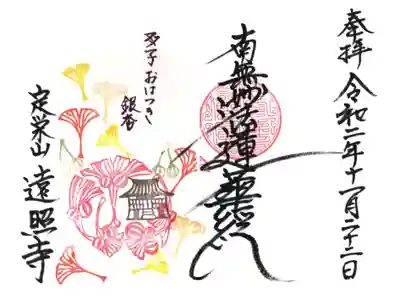 奉拝 令和二年十一月二十二日
南無妙法蓮華経
夛子 おはつき
銀杏
定栄山 遠照寺